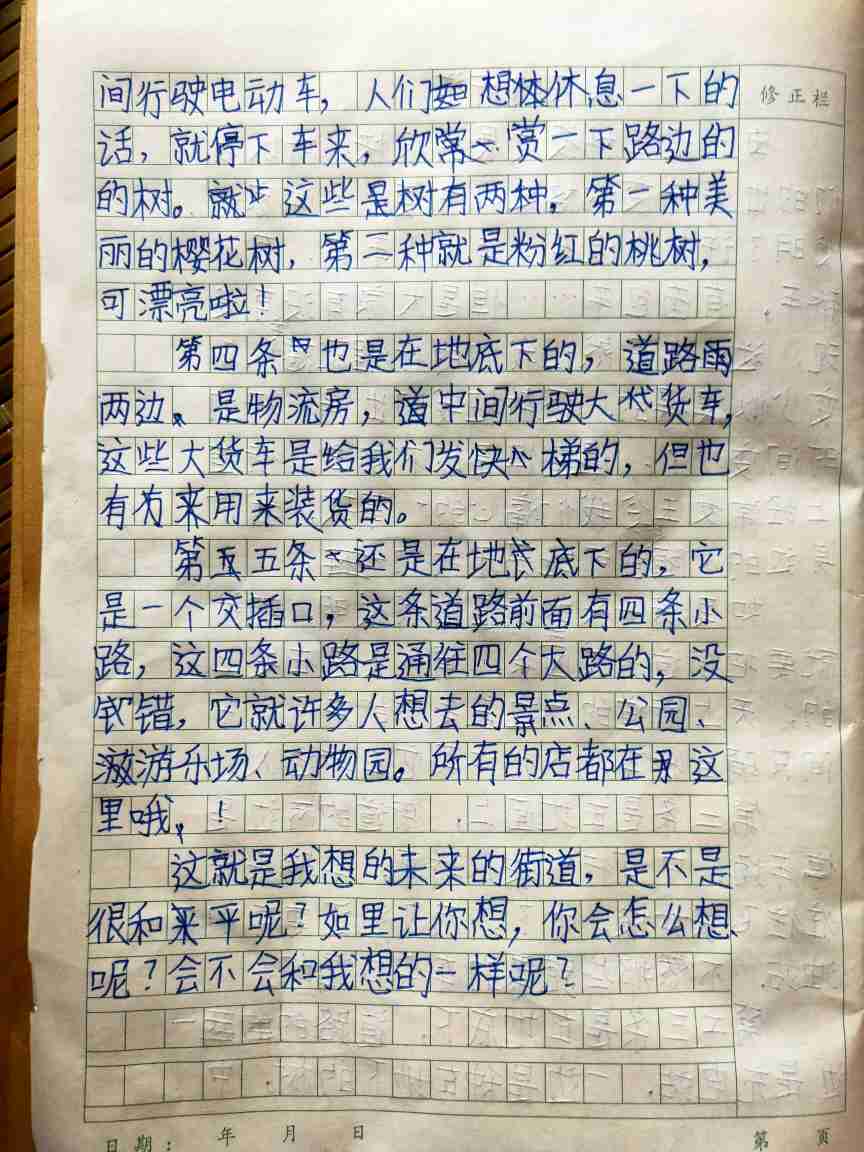 间行驶电动车，人们如想体休息一下的
修正栏
话，就停下车来，欣常赏一下路边的
的树。就这些是树有两种，第一种美
丽的樱花树，第二种就是粉红的桃树，
可漂亮啦！
第四条也是在地底下的，道路雨
两边、是物流房，道中间行驶大代货车，
这些大货车是给我们发快梯的，但也
有为来用来装货的。
第五五条还是在地长底下的，它
是一个交插口，这条道路前面有四条小
路，这四条小路是通往四个大路的，没
错，它就许多人想去的景点、公园、
游乐场、动物园。所有的店都在这
里哦、！
这就是我想的未来的街道，是不是
很和平呢？如里让你想，你会怎么想、
呢？会不会和我想的一样呢？
日期： 年 月 日
第 页